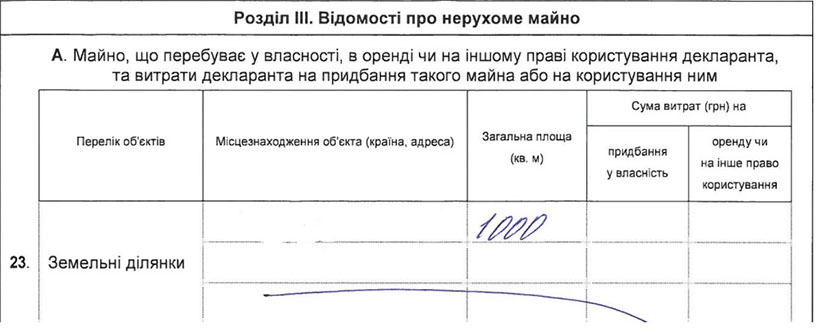 Розділ III. Відомості про нерухоме майно
А. Майно, що перебуває у власності, в оренді чи на іншому праві користування декларанта,
та витрати декларанта на придбання такого майна або на користування ним
Перелік об'єктів
Місцезнаходження об'єкта (країна, адреса)
Загальна площа
(кв. м)
Сума витрат (грн) на
придбання
у власність
оренду чи
на інше право
користування
1000
23. Земельні ділянки